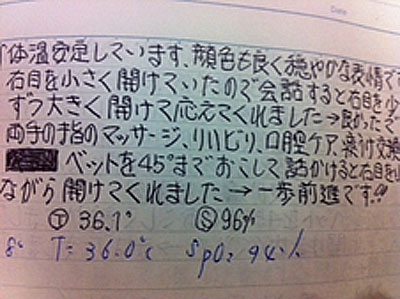 Date
体温安定しています、顔色も良く穏やかな表情で
右目を小さく開けていたので会話すると右目を少
ずつ大きく開けて応えてくれました→良かったで
両手の指のマッサージ、リハビリ、口腔ケア、
ベットを45°までおこして話かけると右目を
ながら開けてくれました→一歩前進です!!
Ⓣ 36.1° Ⓢ 96%
8° T=36.0°c SpO2 94%